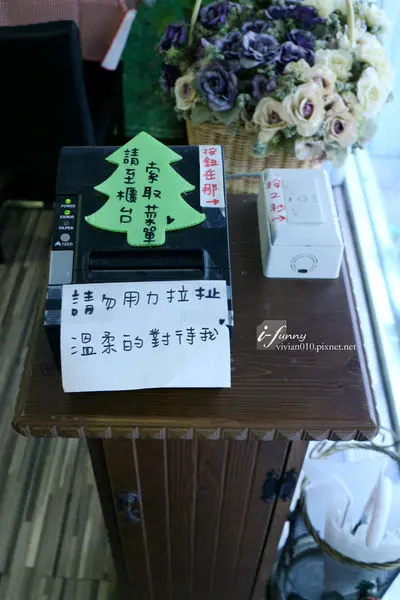 請至櫃台
索取菜單
按鈕在那→
按2秒→
POWER
ERROR
PAPER
FEED
請勿用力拉扯
溫柔的對待我
i-funny
vivian010.pixnet.net